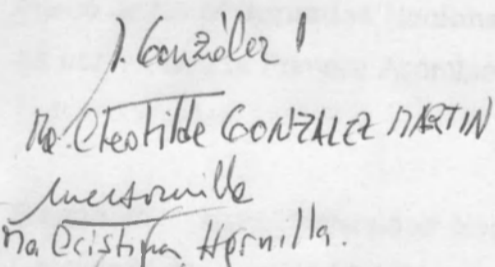 J. González
Ma. Cleotilde GONZALEZ MARTIN
Ma Cristina Hornilla.